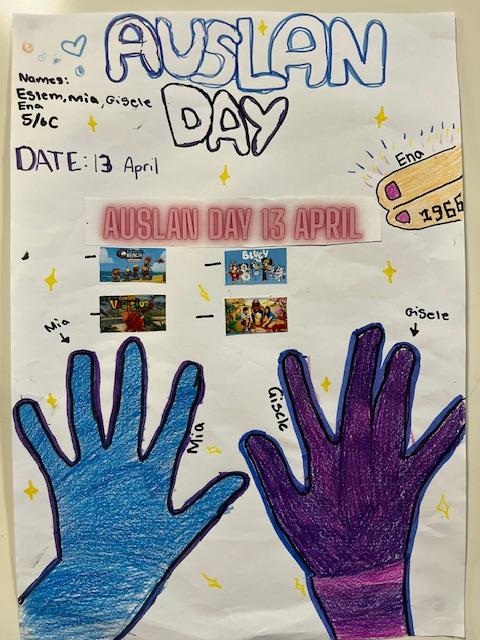 AUSLAN
DAY
Names:
Eslem, Mia, Gisele
Ena
5/6C
DATE: 13 April
Ena
1966
AUSLAN DAY 13 APRIL
BEACH
BLUEY
DINOSAUR
Mia
Gisele
Gisele
Mia